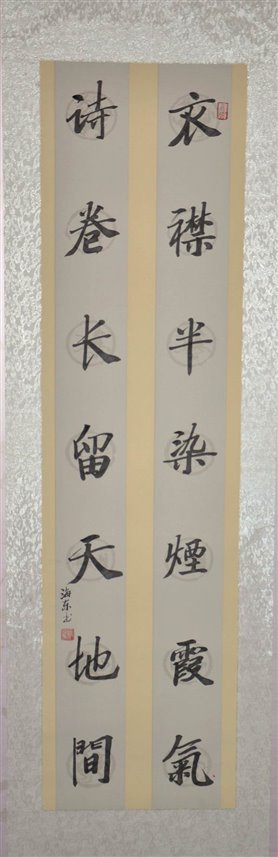 衣襟半染煙霞氣
诗卷长留天地間
海东书